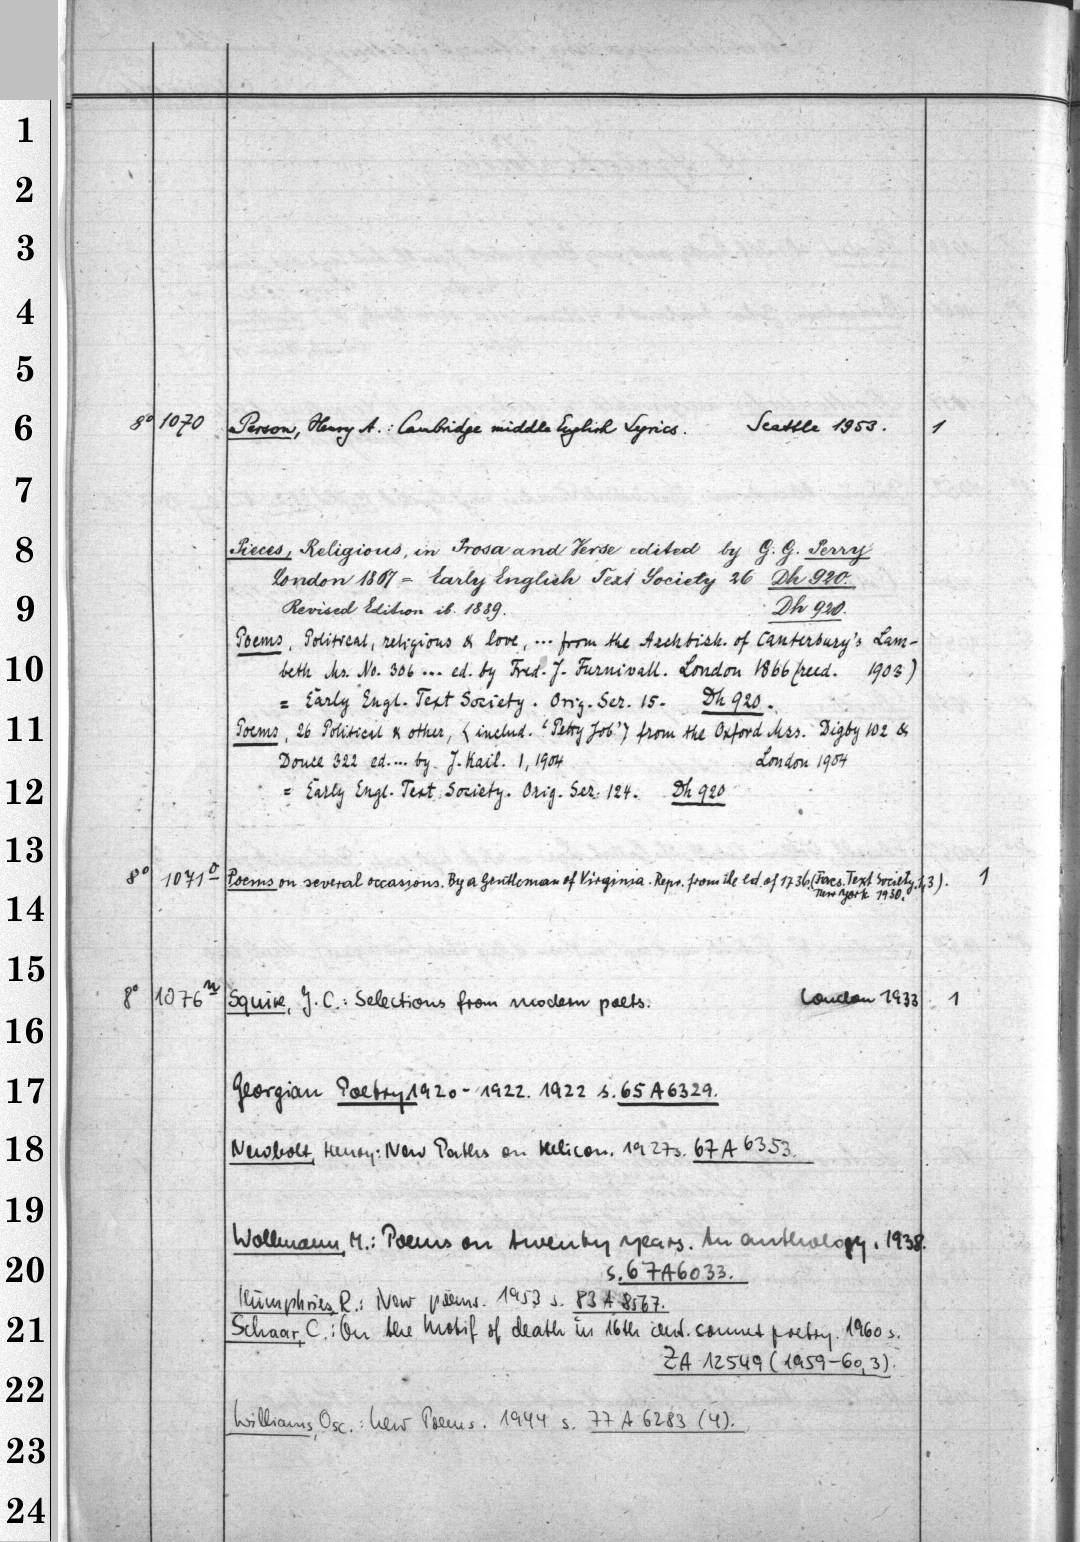 1
2
3
4
5
6 8° 1070 Person, Henry A.: Cambridge middle English Lyrics. Seattle 1953. 1
7
8 Pieces, Religious, in Prosa and Verse edited by G. G. Perry
London 1867 = Early English Text Society 26 Dh 920.
9 Revised Edition ib. 1889. Dh 920.
Poems, Political, religious & love, ... from the Archbish. of Canterbury's Lam-
10 beth Ms. No. 306 ... ed. by Fred. J. Furnivall. London 1866 (reed. 1903)
= Early Engl. Text Society. Orig. Ser. 15. Dh 920.
11 Poems, 26 Political & other, (includ. 'Petty Job') from the Oxford Mss. Digby 102 &
Douce 322 ed. ... by J. Kail. 1, 1904 London 1904
12 = Early Engl. Text Society. Orig. Ser. 124. Dh 920
13
8° 1071° Poems on several occasions. By a Gentleman of Virginia. Repr. from the ed. of 1736. (Facs. Text Society. 1,3). 1
New York 1930.
14
15
8° 1076n Squire, J. C.: Selections from modern poets. London 1933 1
16
17 Georgian Poetry 1920-1922. 1922 s. 65 A 6329.
18 Newbolt, Henry: New Paths on Helicon. 1927 s. 67 A 6353.
19
Wollmann, M.: Poems on twenty years. An anthology. 1938.
20 s. 67 A 6033.
Humphries, R.: New poems. 1953 s. 83 A 8567.
21 Schaar, C.: On the Motif of death in 16th cent. sonnet poetry. 1960 s.
ZA 12549 (1959-60,3).
22
Williams, Osc.: New Poems. 1944 s. 77 A 6283 (4).
23
24